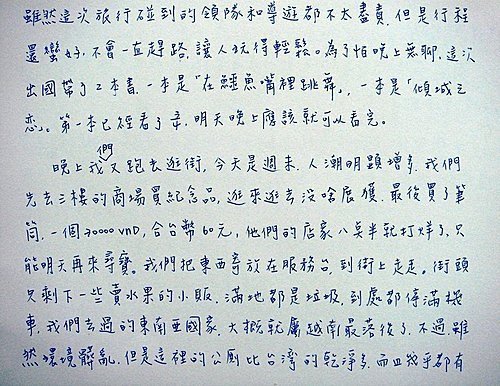 雖然這次旅行碰到的領隊和導遊都不太盡責,但是行程
還蠻好,不會一直趕路,讓人玩得輕鬆。為了怕晚上無聊,這次
出國帶了2本書,一本是「在鱷魚嘴裡跳舞」,一本是「傾城之
戀」。第一本已經看了一半,明天晚上應該就可以看完。
晚上我們又跑去逛街,今天是週末,人潮明顯增多,我們
先去三樓的商場買紀念品,逛來逛去沒啥展獲,最後買了筆
筒,一個30000VND,合台幣60元,他們的店家八點半就打烊了,只
能明天再來尋寶。我們把東西寄放在服務台,到街上走走。街頭
只剩下一些賣水果的小販,滿地都是垃圾,到處都停滿機
車,我們去過的東南亞國家,大概就屬越南最落後了,不過雖
然環境髒亂,但是這裡的公廁比台灣的乾淨多,而且幾乎都有